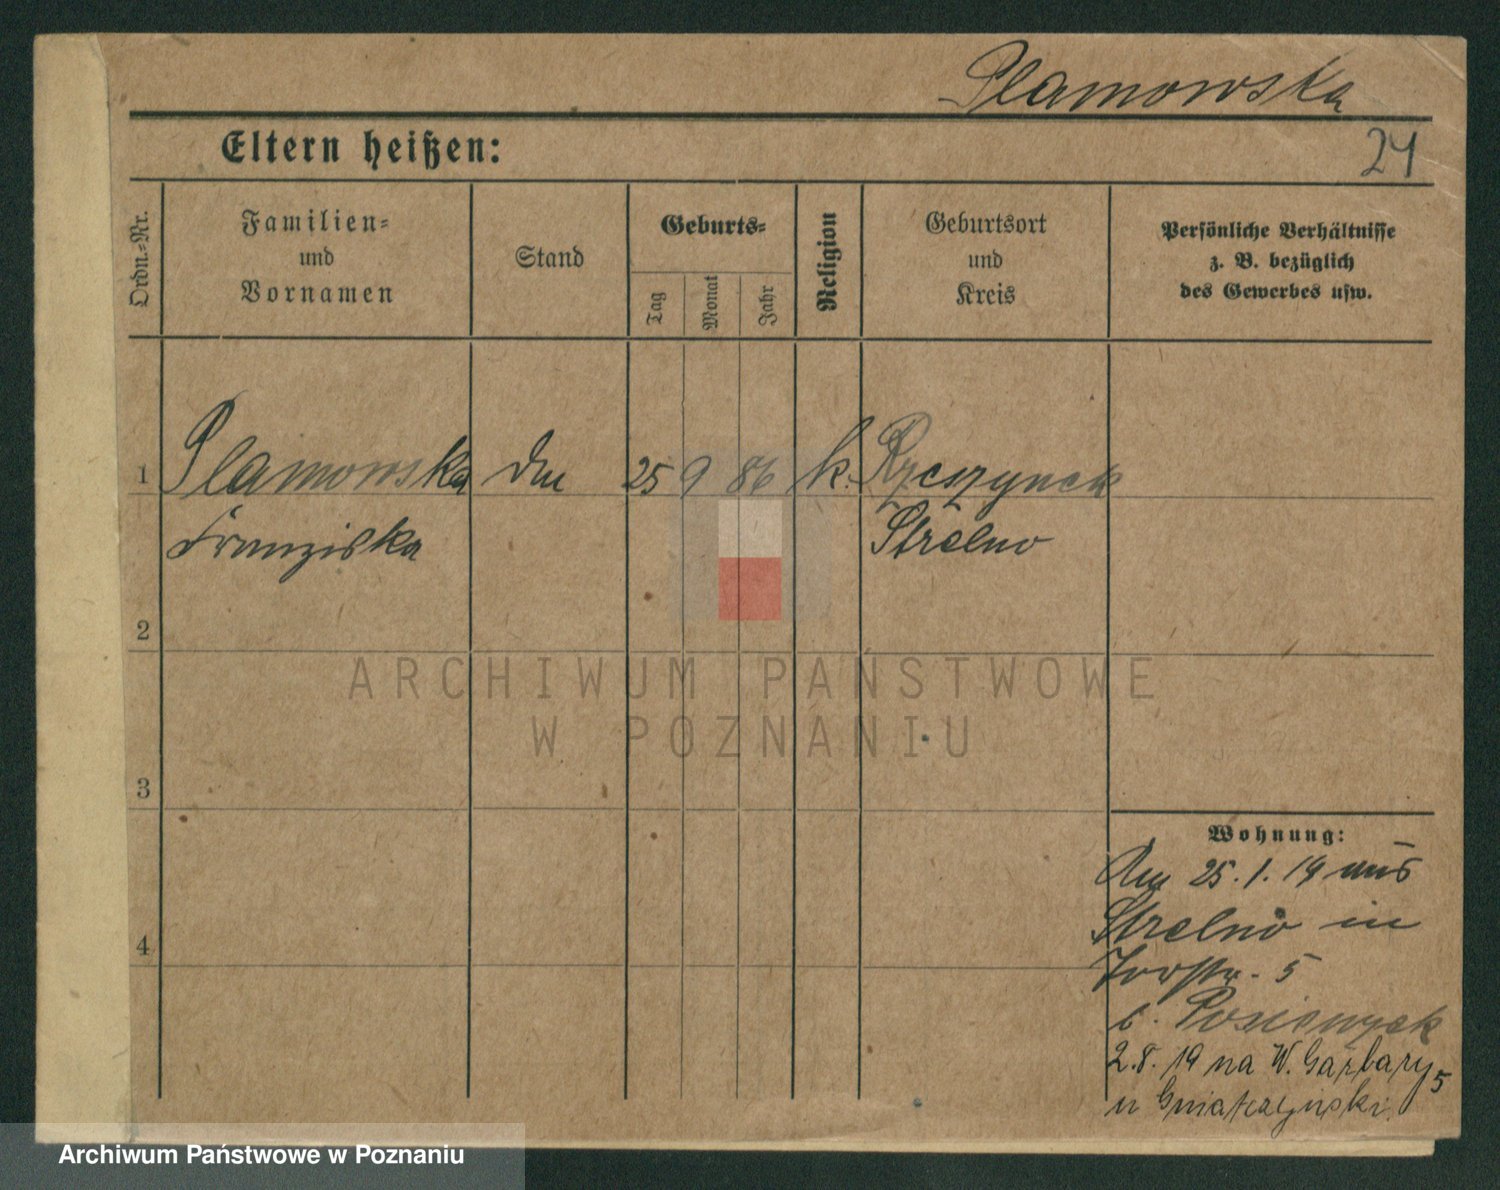 Plamowska
24
Eltern heißen:
Ordn.-Nr.
Familien-
und
Vornamen
Stand
Geburts-
Tag
Monat
Jahr
Religion
Geburtsort
und
Kreis
Persönliche Verhältnisse
z. B. bezüglich
des Gewerbes usw.
1 Plamowska 25 9 86 k.
Franziska Strelno
2
3
4
Wohnung:
25. 1. 19 aus
Strelno in
5
2.8. 19 na W. Garbary 5
u
ARCHIWUM PAŃSTWOWE
W POZNANIU
Archiwum Państwowe w Poznaniu